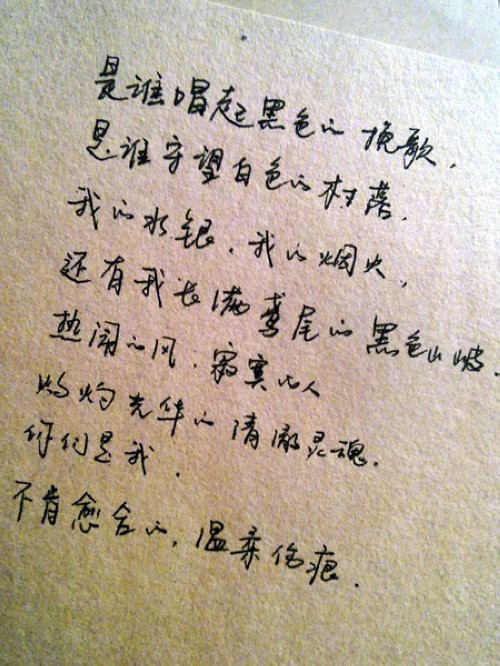 是谁唱起黑色的挽歌，
是谁守望白色的村落.
我的水银.我的烟火，
还有我长满鸢尾的黑色山坡.
热闹的风.寂寞的人
灼灼光华的清澈灵魂.
你们是我.
不肯愈合的.温柔伤痕.